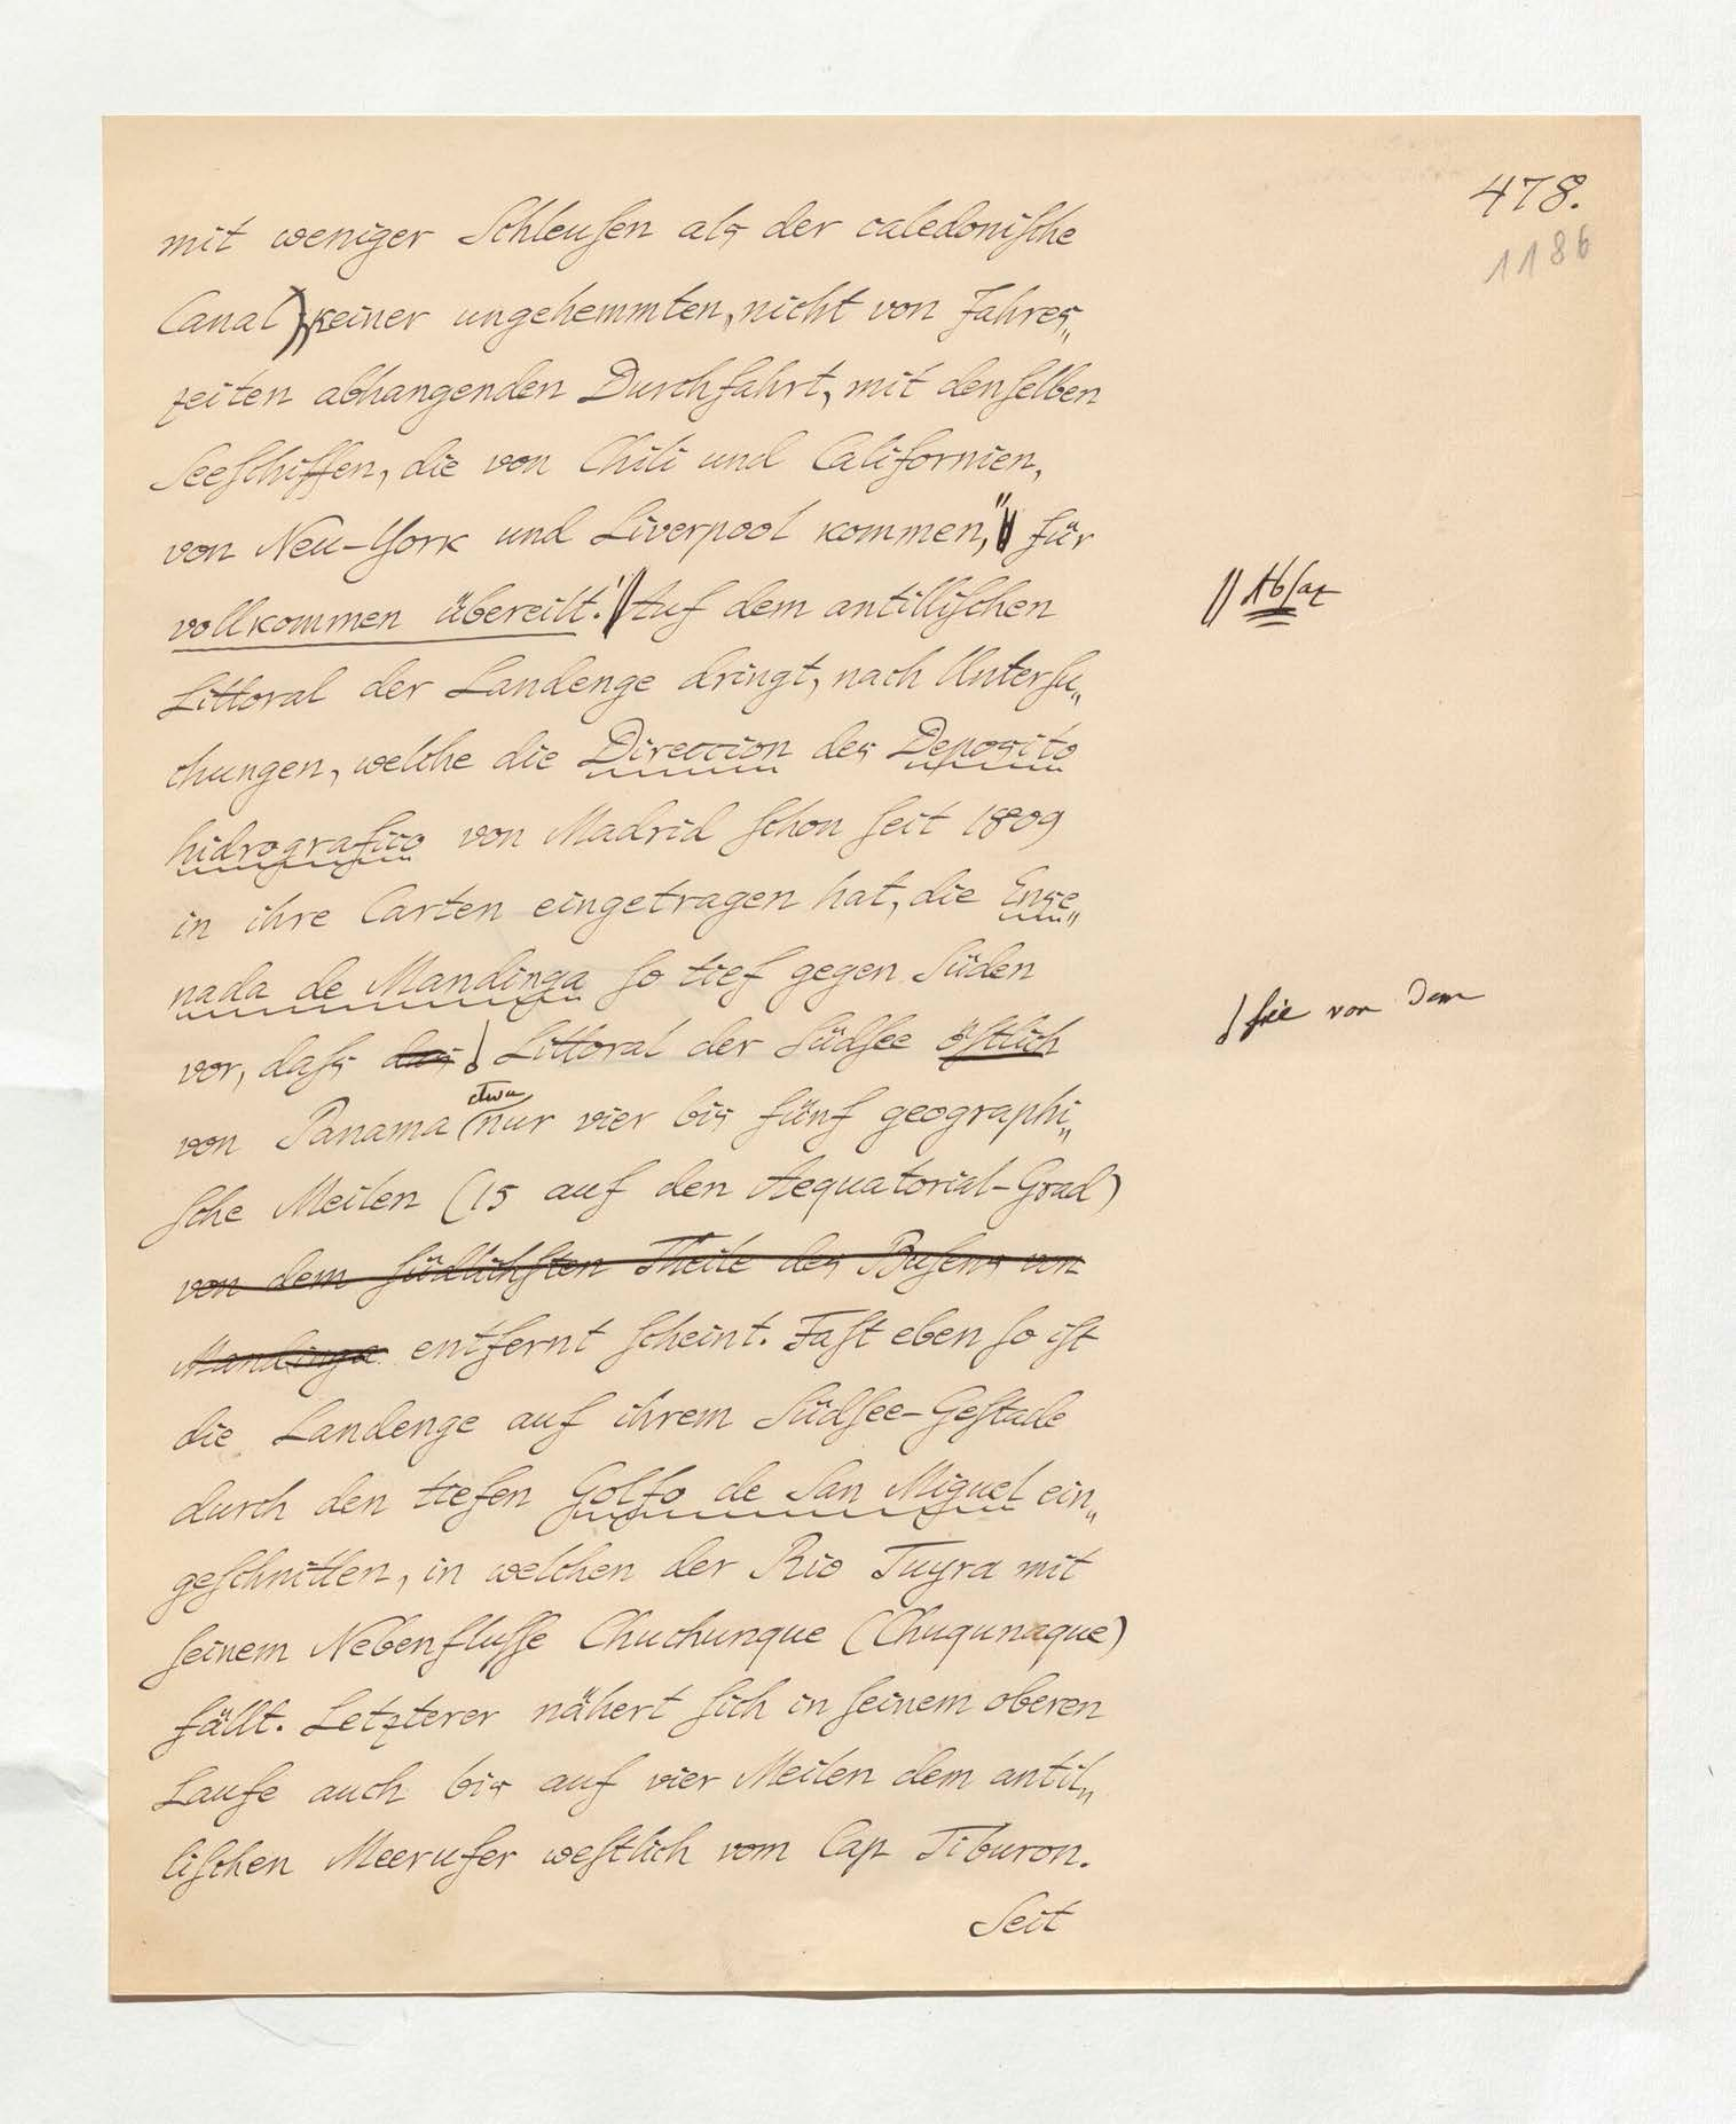 478.
1186
mit weniger Schleuſen als der caledoniſche
Canal); keiner ungehemmten, nicht von Jahres„
zeiten abhangenden Durchfahrt, mit denſelben
Seeſchiffen, die von Chili und Californien,
von Neu-York und Liverpool kommen," für
vollkommen übereilt." Auf dem antilliſchen
|| Abſatz
Littoral der Landenge dringt, nach Unterſu„
chungen, welche die Direccion des Deposito
hidrografico von Madrid ſchon ſeit 1809
in ihre Carten eingetragen hat, die Ense„
nada de Mandinga ſo tief gegen Süden
vor, daſs das Littoral der Südſee öſtlich
ſie von dem
etwa
von Panama nur vier bis fünf geographi„
ſche Meilen (15 auf den Aequatorial-Grad)
von dem ſüdlichſten Theile des Buſens von
Mandinga entfernt ſcheint. Faſt eben ſo iſt
die Landenge auf ihrem Südſee-Geſtade
durch den tiefen Golfo de San Miguel ein„
geſchnitten, in welchen der Rio Tuyra mit
ſeinem Nebenfluſſe Chuchunque (Chuqunaque)
fällt. Letzterer nähert ſich in ſeinem oberen
Laufe auch bis auf vier Meilen dem antil„
liſchen Meerufer weſtlich vom Cap Tiburon.
Seit